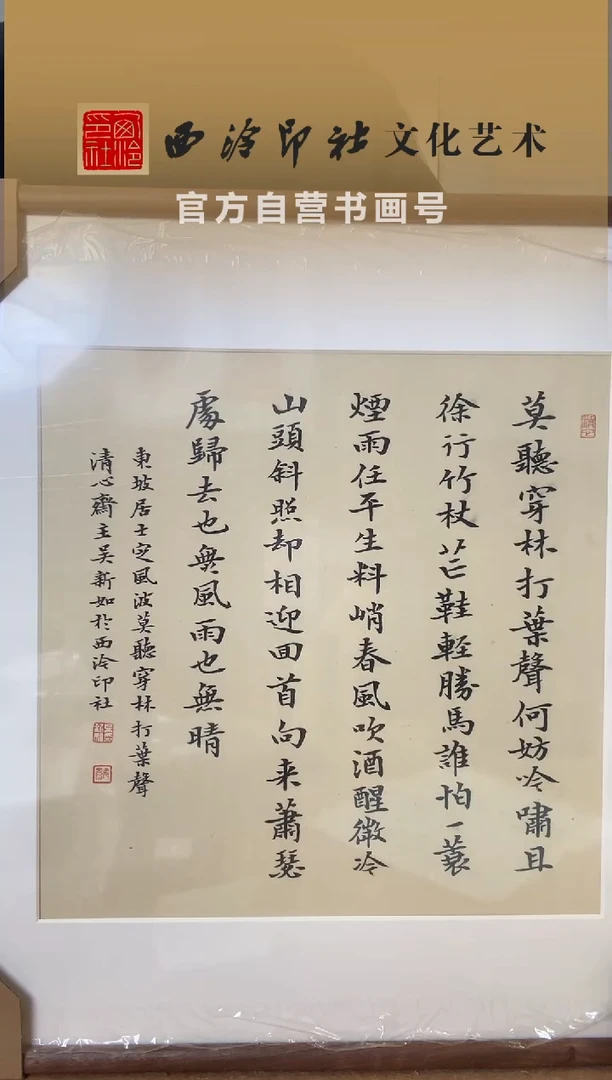 西泠印社
西泠印社文化艺术
官方自营书画号
莫聽穿林打葉聲何妨吟嘯且
徐行竹杖芒鞋輕勝馬誰怕一蓑
煙雨任平生料峭春風吹酒醒微冷
山頭斜照却相迎回首向来蕭瑟
處歸去也無風雨也無晴
東坡居士定風波莫聽穿林打葉聲
清心齋主吴新如於西泠印社